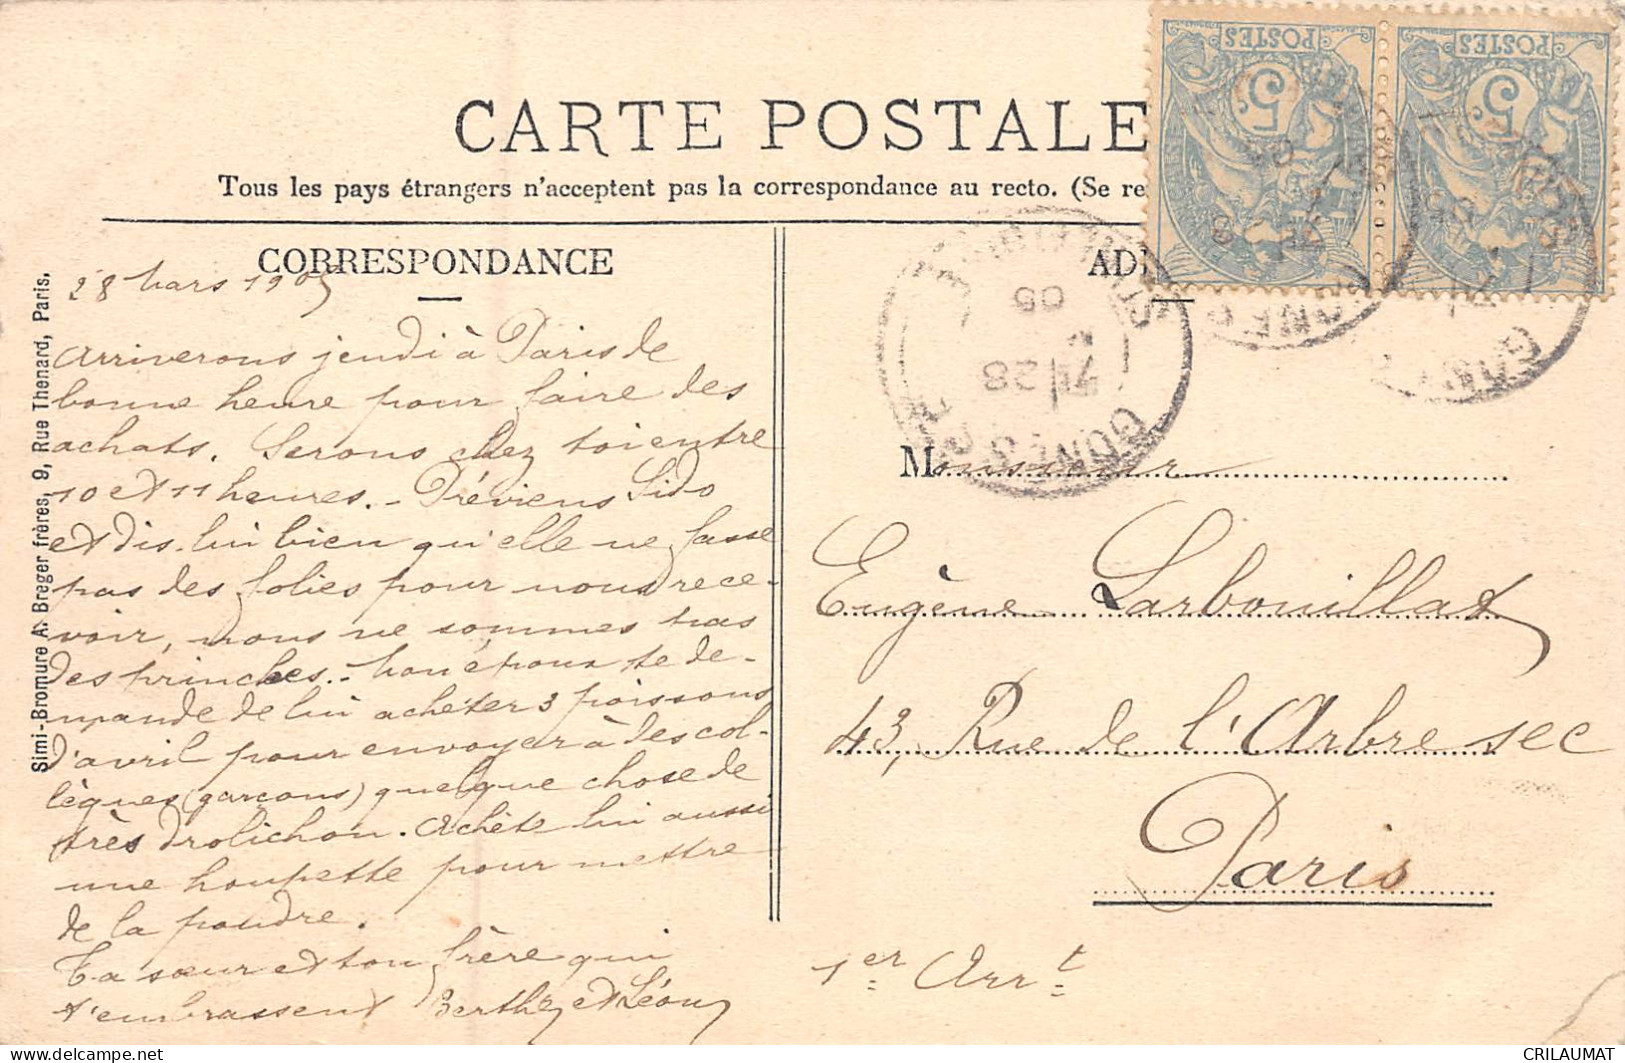 CARTE POSTALE
Tous les pays étrangers n'acceptent pas la correspondance au recto. (Se re
CORRESPONDANCE
28 Mars 1905
Arriverons jeudi à Paris de
bonne heure pour faire des
achats. Serons chez toi entre
10 et 11 heures. - Préviens Sido
et dis-lui bien qu'elle ne fasse
pas des folies pour nous rece-
voir, nous ne sommes pas
des princhès. - Mon époux te de-
mande de lui acheter 3 poissons
d'avril pour envoyer à des col-
lègues (garçons) quelque chose de
très drolichon. Achète lui aussi
une houpette pour mettre
de la poudre.
Ta sœur et ton frère qui
t'embrassent Berthe et Léon
Simi-Bromure A. Breger frères, 9, Rue Thenard, Paris.
POSTES
5
POSTES
5
GONESSE
7 / 28
05
AD
Monsieur
Eugène Larbouillat
43, Rue de l'Arbre sec
Paris
1er Arrt
CRILAUMAT